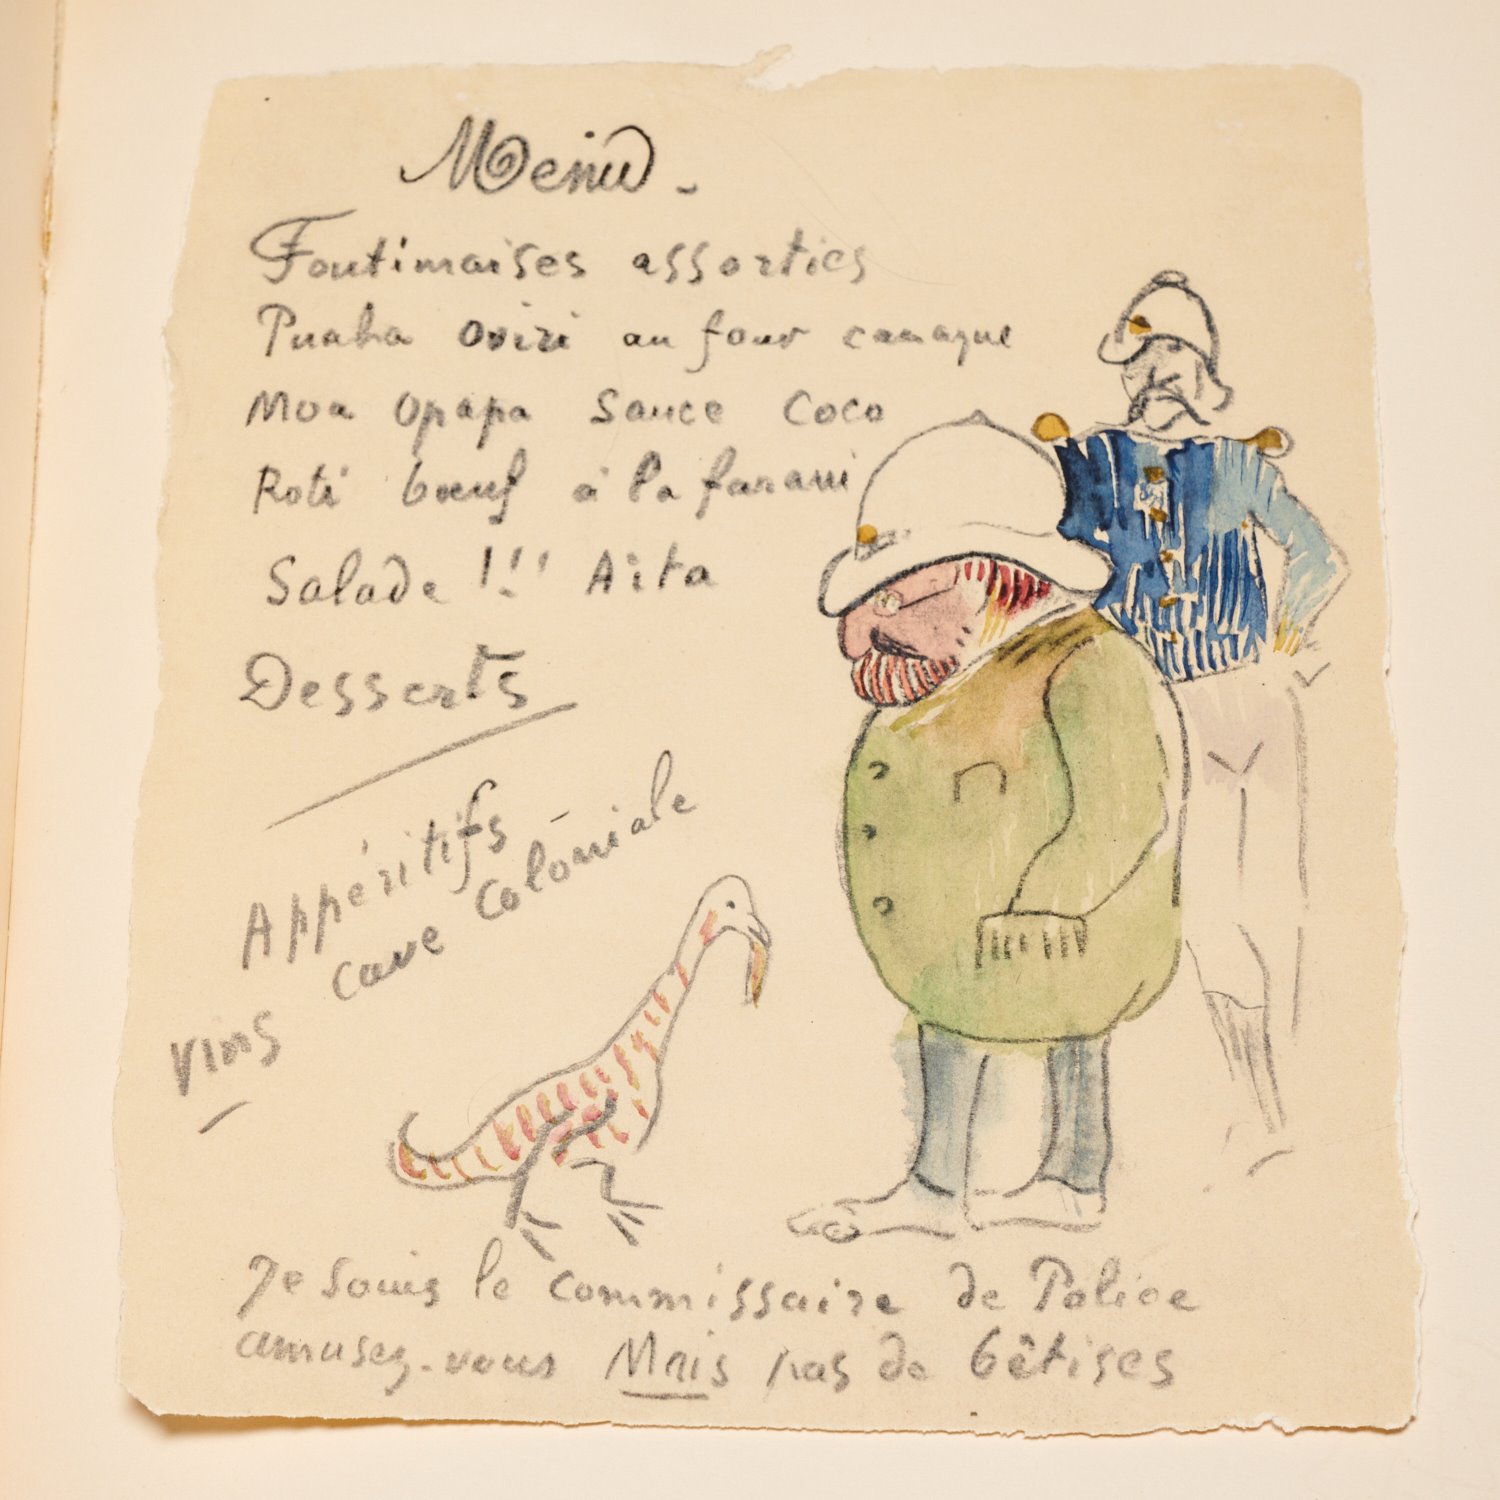 Menu -
Foutimaises assorties
Puaha oviri au four canaque
Moa Opapa Sauce Coco
Roti bœuf à la farani
Salade !!! Aita
Desserts
Appéritifs
vins cave coloniale
Je souis le commissaire de Police
amusez-vous Mais pas de bêtises